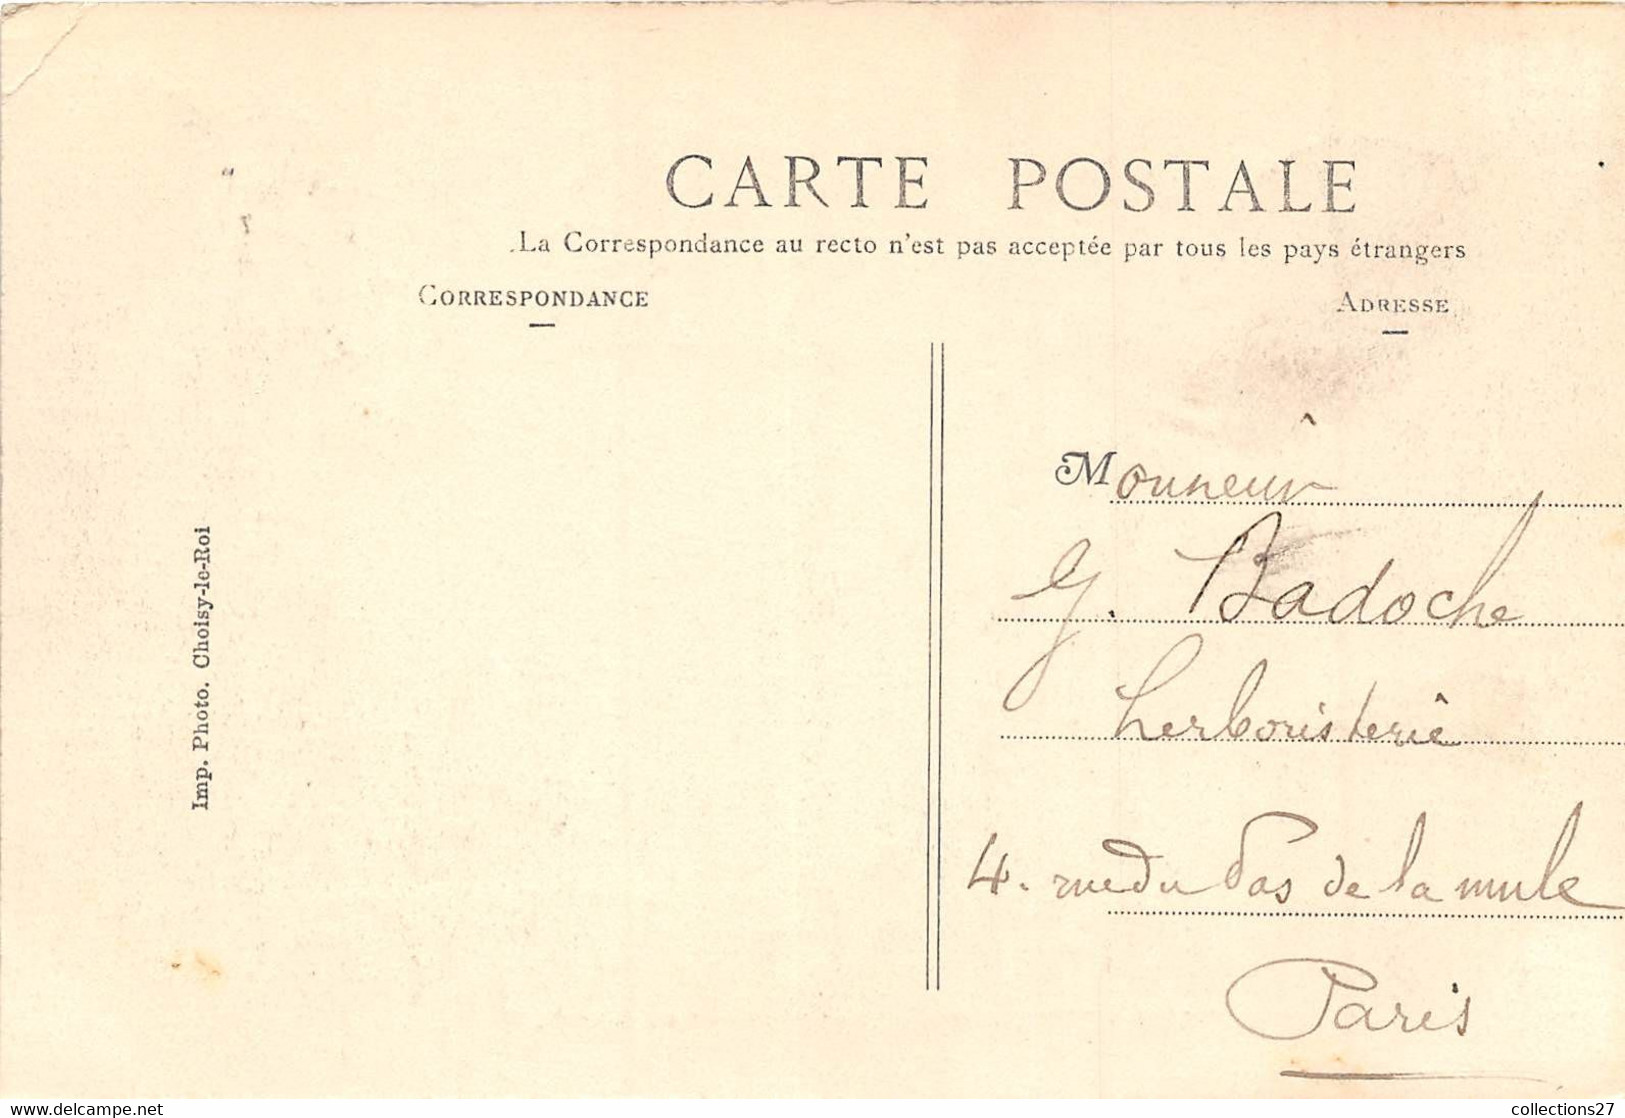 CARTE POSTALE
La Correspondance au recto n'est pas acceptée par tous les pays étrangers
CORRESPONDANCE
ADRESSE
Monsieur
G. Badoche
herboristerie
4. rue du Pas de la mule
Paris
Imp. Photo. Choisy-le-Roi
collections27